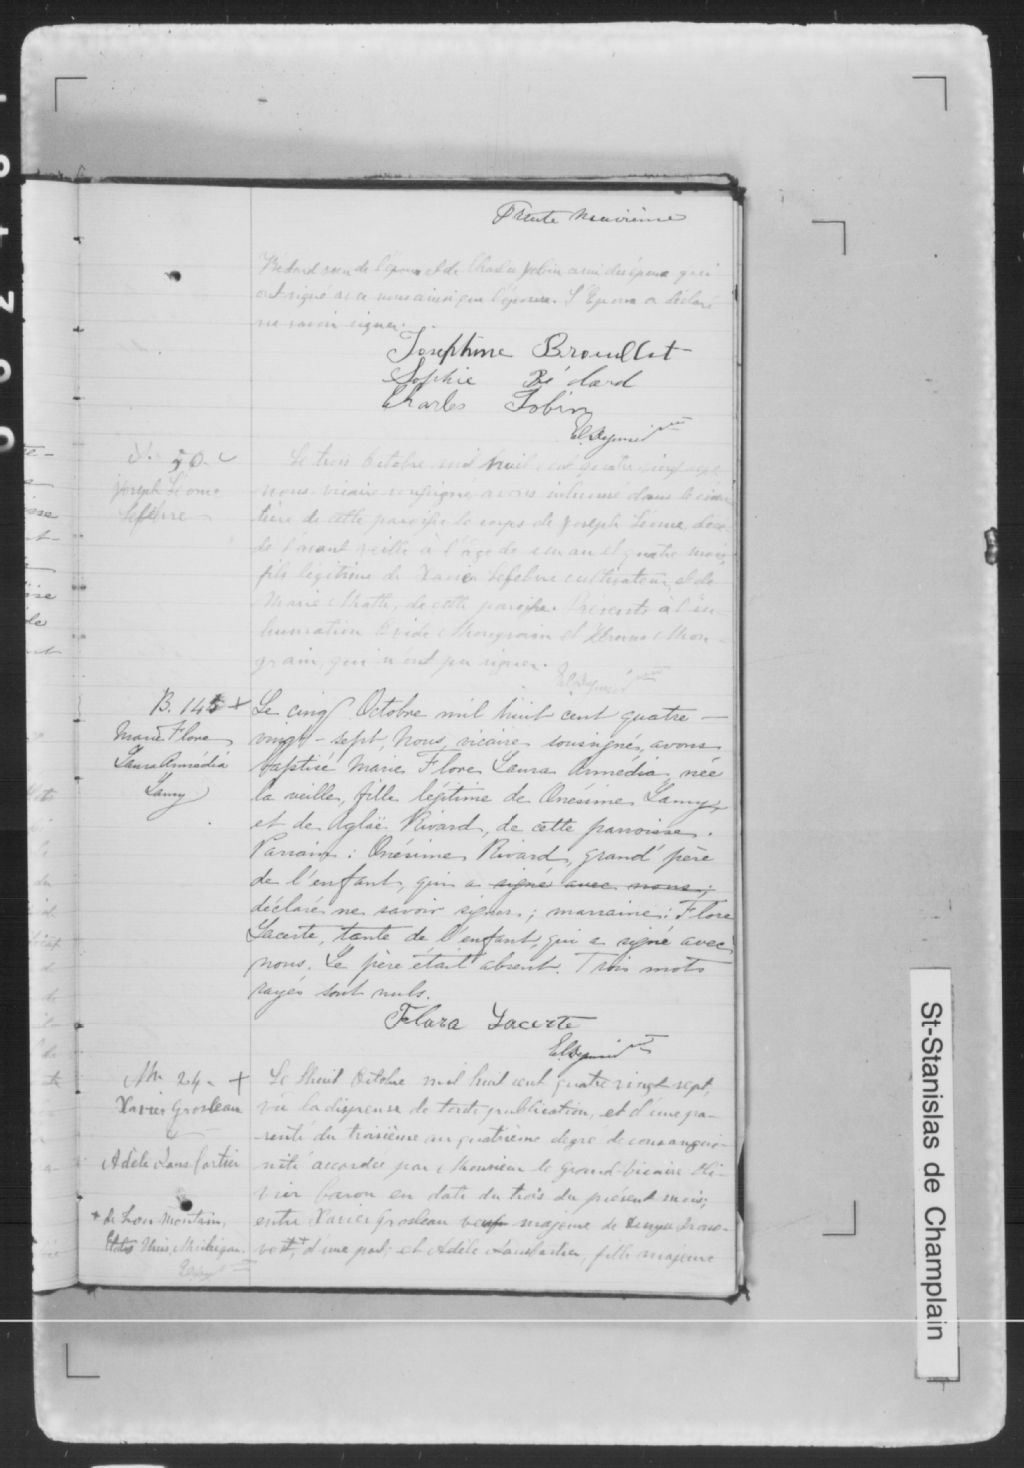 Trente neuvième
Bédard sœur de l'époux et de Charles Jobin ami des époux qui
ont signé avec nous ainsi que l'épouse. L'Epoux a déclaré
ne savoir signer.
Josephine Brouillet
Sophie Bédard
Charles Jobin
S. 50.
Joseph Léonce
Lefebvre
Le trois Octobre mil huit cent quatre vingt sept
nous vicaire soussigné avons inhumé dans le cime-
tière de cette paroisse le corps de Joseph Léonce, décé-
dé l'avant veille à l'âge de un an et quatre mois,
fils légitime de Xavier Lefebvre cultivateur et de
Marie Matte, de cette paroisse. Présents à l'in-
humation Ovide Mongrain et Mon-
grain, qui n'ont pu signer.
B. 145 +
Marie Flore
Laura Armédia
Lamy
Le cinq Octobre mil huit cent quatre-
vingt-sept, Nous, vicaire soussigné, avons
baptisé Marie Flore Laura Armédia, née
la veille, fille légitime de Onésime Lamy,
et de Aglaë Rivard, de cette paroisse.
Parrain: Onésime Rivard, grand'père
de l'enfant, qui a signé avec nous;
déclaré ne savoir signer; marraine: Flore
Lacerte, tante de l'enfant, qui a signé avec
nous. Le père était absent. Trois mots
rayés sont nuls.
Flora Lacerte
M. 24. +
Xavier Grosleau
&
Adèle Lansfortier
+ de Iron Mountain,
Etats Unis, Michigan.
Le Huit Octobre mil huit cent quatre vingt sept,
vu la dispense de toute publication, et d'une pa-
renté du troisième au quatrième degré de consangui-
nité accordée par Monsieur le grand-vicaire Oli-
vier Caron en date du trois du présent mois;
entre Xavier Grosleau veuf majeur de
+, d'une part; et Adèle Lansfortier, fille majeure
St-Stanislas de Champlain